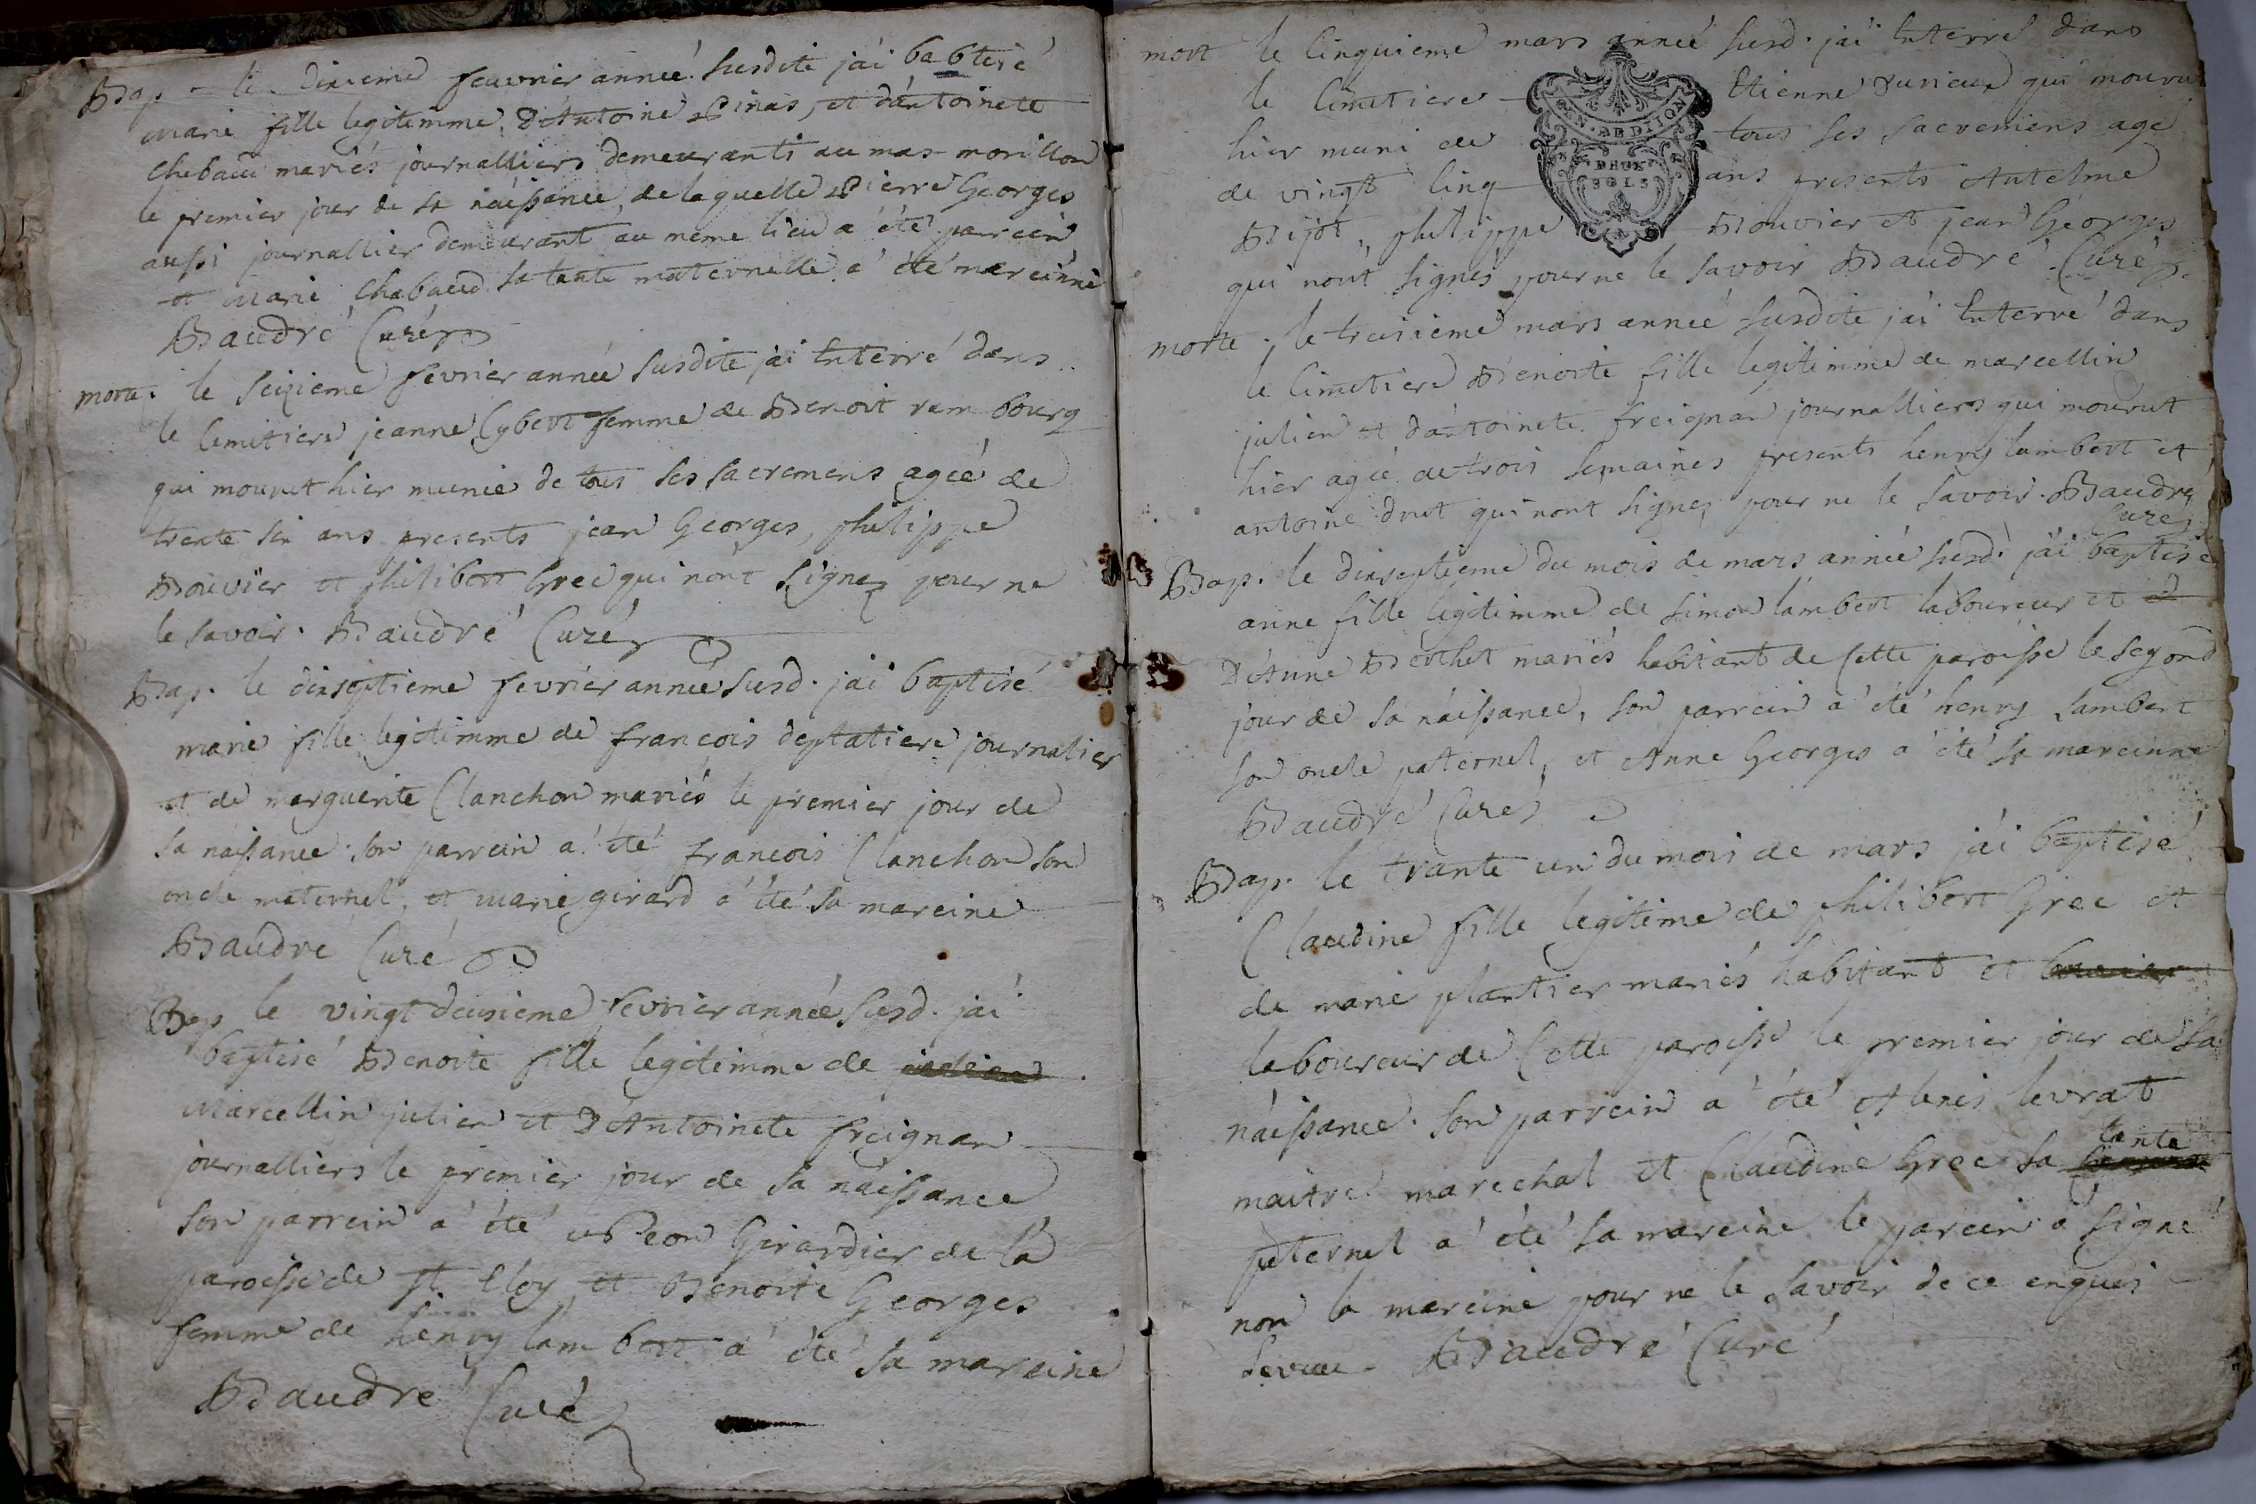 Bap - le dixieme feuvrier anneé susdite j'ai babtisé
marie fille legitimme D'Antoine Pinas, et d'antoinete
Chabaud mariés journalliers demeurants au mas morillon
le premier jour de sa náissance, de laquelle Pierre Georges
aussi journallier demeurant au meme lieu a été parrein
et Marie Chabaud sa tante maternelle a été mareinne
Baudré Curé
morte. le seizieme fevrier anneé susdite j'ai Enterré dans
le Cemitiere jeanne Cybert femme de Benoit rambourg
qui mourut hier munie de tous ses sacremens ageé de
trente six ans presents jean Georges, philippe
Bouvier et philibert Grec qui n'ont signez pour ne
le savoir. Baudré Curé
Bap. le dixseptieme fevrier anneé susd. j'ai baptisé
marie fille legitimme de francois deptatiere journalier
et de marguerite Clanchon mariés le premier jour de
sa naissance son parrein a été francois Clanchon son
oncle maternel, et marie girard a été sa mareine
Baudré Curé
Bap le vingt deuxieme fevrier anneé susd. j'ai
baptisé Benoite fille legitimme de julien
Marcellin julien et D'Antoinete freignan
journalliers le premier jour de sa náissance
son parrein a été Leon Girardier de la
paroisse de st. Eloy et Benoite Georges
femme de henry lambert a été sa mareine
Baudré Curé
mort le Cinquieme mars anneé susd. j'ai Enterré dans
le Cimetiere Etienne Durieux qui mourut
hier muni de tous ses sacremens agé
de vingt Cinq ans presents Antelme
Bijot, philippe Bouvier et jean Georges
qui n'ont signés pour ne le savoir Baudré Curé
GEN. DE DIJON
DEUX
SOLS
morte. le treisieme mars anneé susdite j'ai Enterré dans
le Cimetiere Benoite fille legitimme de marcellin
julien et d'antoinete freignan journalliers qui mourut
hier ageé de trois semaines presents henry lambert et
antoine drut qui n'ont signez pour ne le savoir. Baudré
Curé
Bap. le dixseptieme du mois de mars anneé susd. j'ai baptisé
anne fille legitimme de simon lambert laboureur et d
D'Anne Berthet mariés habitant de Cette paroisse le segond
jour de sa náissance, son parrein a été henry lambert
son oncle paternel, et Anne Georges a été sa mareinne
Baudré Curé
Bap. le trante un du mois de mars j'ai baptisé
Claudine fille legitime de philibert Grec et
de marie plantier mariés habitant et
laboureur de Cette paroisse le premier jour de sa
náissance. son parrein a été Alexis levrat
maitre marechal et Claudine Grec sa tante
paternel a été sa mareine le parein a signé
non la mareine pour ne le savoir de ce enquis
Levrat. Baudré Curé